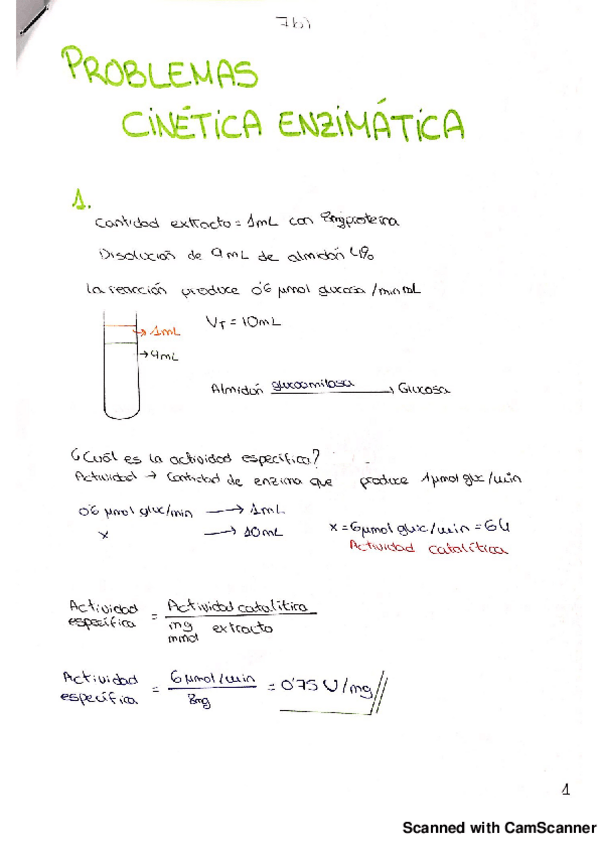 PROBLEMAS
CINÉTICA ENZIMÁTICA
1.
Cantidad extracto = 1mL con 8mg proteína
Disolución de 9mL de almidón 4%
La reacción produce 0'6 µmol glucosa/min mL
VT = 10mL
→ 1mL
→ 9mL
Almidón glucoamilasa → Glucosa
¿Cuál es la actividad específica?
Actividad → Cantidad de enzima que produce 1µmol glc/min
0'6 µmol gluc/min → 1mL
x → 10mL x = 6µmol gluc/min = 6U
Actividad catalítica
Actividad específica = Actividad catalítica
mg extracto
mmol
Actividad específica = 6µmol/min = 0'75 U/mg
8mg
1
Scanned with CamScanner